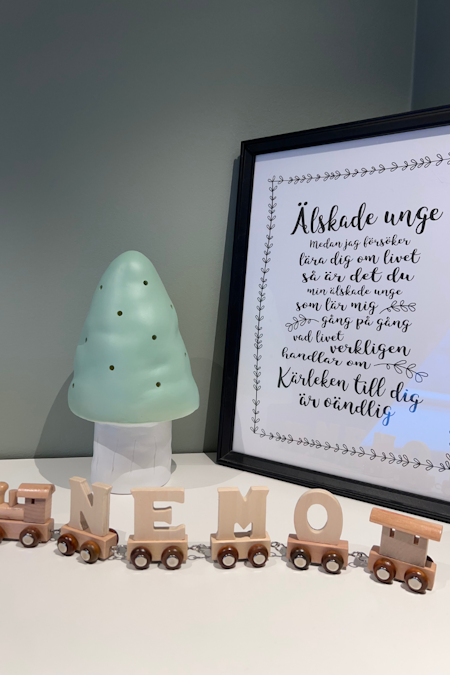 Älskade unge
Medan jag försöker
lära dig om livet
så är det du
min älskade unge
som lär mig
gång på gång
vad livet
verkligen
handlar om
Kärleken till dig
är oändlig
NEMO